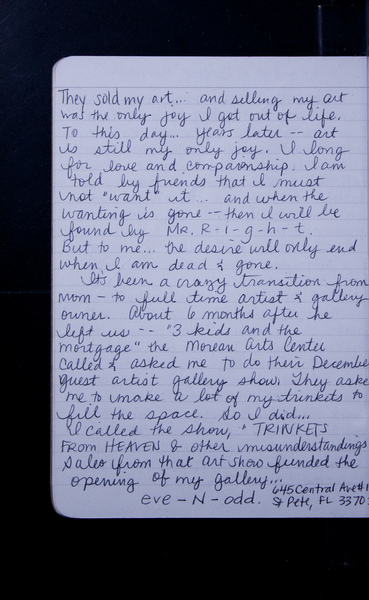 They sold my art... and selling my art
was the only joy I got out of life.
To this day... years later -- art
is still my only joy. I long
for love and companionship. I am
told by friends that I must
not "want" it... and when the
wanting is gone -- then I will be
found by Mr. R-i-g-h-t.
But to me... the desire will only end
when I am dead & gone.
Its been a crazy transition from
mom - to full time artist & gallery
owner. About 6 months after he
left us -- "3 kids and the
mortgage" the Morean Arts Center
called & asked me to do their December
guest artist gallery show. They aske
me to make a lot of my trinkets to
fill the space. So I did...
I called the show, "TRINKETS
FROM HEAVEN & other misunderstandings
Sales from that art show funded the
opening of my gallery...
eve-N-odd. 645 Central Ave #1
St Pete, FL 3370